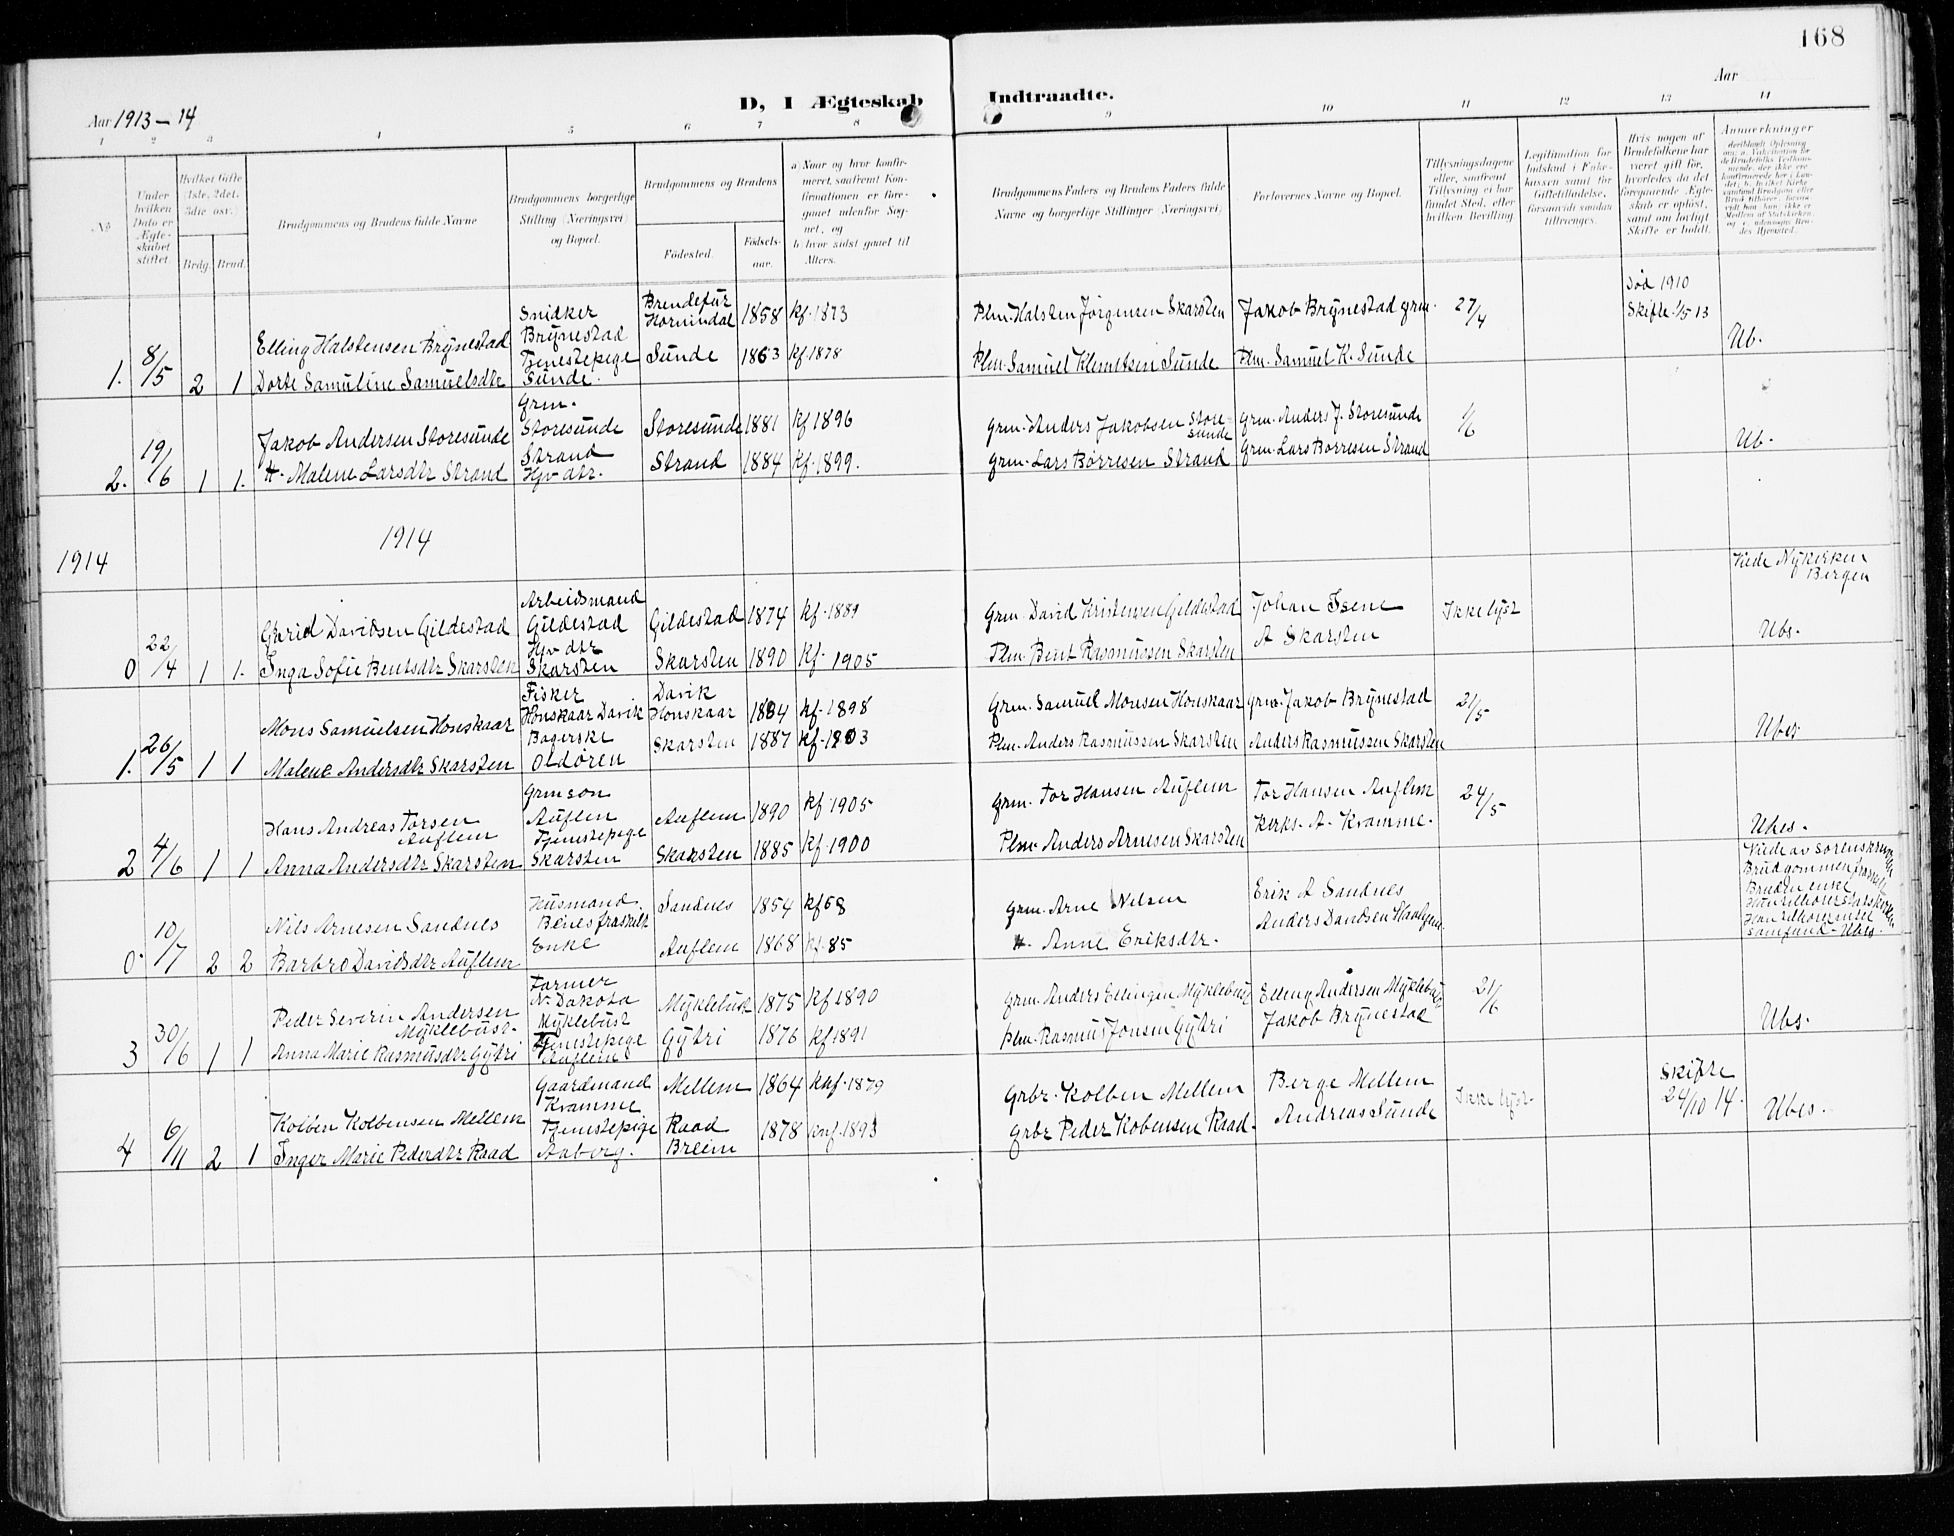 168
Aar
Aar 1913–14
D, I Ægteskab Indtraadte.
1 2 3 4 5 6 7 8 9 10 11 12 13 14
No
Under hvilken Dato er Ægteskabet stiftet.
Hvilket Gifte (1ste, 2det, 3die osv.)
Brdg. Brud.
Brudgommens og Brudens fulde Navne
Brudgommens borgerlige Stilling (Næringsvei) og Bopæl.
Brudgommens og Brudens
Fødested.
Fødsels-aar.
a) Naar og hvor konfirmeret, saafremt Konfirmationen er foregaaet udenfor Sognet, og
b) hvor sidst gaaet til Alters.
Brudgommens Faders og Brudens Faders fulde Navne og borgerlige Stillinger (Næringsvei)
Forlovernes Navne og Bopæl.
Tillysningsdagene eller, saafremt Tillysning ei har fundet Sted, efter hvilken Bevilling.
Legitimation for Indskud i Enkekassen samt for Giftetilladelse, forsaavidt saadan tiltrænges.
Hvis nogen af Brudefolkene har været gift før, hvorledes da det foregaaende Ægteskab er opløst, samt om lovligt Skifte er holdt.
Anmærkninger
1. 8/5 2 1
Elling Halstensen Brynestad
Dorte Samuline Samuelsdtr
Snidker
Brynestad
Tjenestepige
Sunde.
Hornindal 1858 kf. 1873
Sunde 1863 kf. 1878
Plm. Halsten Jörgensen Skarsten
Plm. Samuel Klemetsen Sunde
Jakob Brynestad grm.
Plm. Samuel K. Sunde
27/4
död 1910
Skifte 1/5 13
Ub.
2. 19/6 1 1.
Jakob Andersen Storesunde
H. Malene Larsdtr Strand
Grm.
Storesunde
Strand
Hjv dtr.
Storesunde 1881 kf 1896
Strand 1884 kf. 1899.
Grm. Anders Jakobsen Storesunde
Grm. Lars Börresen Strand
Grm. Anders J. Storesunde
Grm. Lars Börresen Strand
1/6
Ub.
1914
1914
0 22/4 1 1.
Davidsen Gildestad
Inga Sofie Bentsdtr Skarsten
Arbeidsmand
Gildestad
Hjv dtr
Skarsten
Gildestad 1874 kf. 1889
Skarsten 1890 kf. 1905
Grm. David Kristensen Gildestad
Plm. Bent Rasmussen Skarsten
Johan Isene
A Skarsten
Ikke lyst
Viede Nykirken
Bergen
Ubs.
1. 26/5 1 1
Mons Samuelsen Honskaar
Malene Andersdtr Skarsten
Fisker
Honskaar Davik
Bagerske
Oldören
Davik
Honskaar 1884 kf. 1898
Skarsten 1887 kf. 1903
Grm. Samuel Monsen Honskaar
Plm. Anders Rasmussen Skarsten
grm. Jakob Brynestad
Anders Rasmussen Skarsten
21/5
Ubes
2 4/6 1 1
Hans Andreas Torsen
Auflem
Anna Andersdtr Skarsten
Grmson
Auflem
Tjenestepige
Skarsten
Auflem 1890 kf 1905
Skarsten 1885 kf. 1900
Grm. Tor Hansen Auflem
Plm. Anders Arnesen Skarsten
Tor Hansen Auflem
Kirks. A. Kramme.
24/5
Ubes.
0 10/7 2 2
Nils Arnesen Sandnes
Barbro Davidsdtr Auflem
Husmand
Benes fraskilt
Enke
Sandnes 1854 kf 68
Auflem 1868 kf. 85
Grm. Arne Nilsen
H. Anne Eriksdtr.
Erik A Sandnes
Anders Davidsen
Viede av Sorenskriver
Brudgommen fraskilt
Bruden enke
Ubes.
3 30/6 1 1
Peder Severin Andersen
Myklebust.
Anna Marie Rasmusdtr Gytri
Farmer
N. Dakota
Myklebust
Tjenestepige
Auflem
Myklebust 1875 kf 1890
Gytri 1876 kf 1891
Grm. Anders Ellingsen Myklebust
Plm. Rasmus Jonsen Gytri
Elling Andersen Myklebust
Jakob Brynestad
21/6
Ubs.
4 6/11 2 1
Kolben Kolbensen Mellem
Inger Marie Pedersdtr Raad
Gaardmand
Kramme
Tjenestepige
Aaberg.
Mellem 1864 knf. 1879
Raad
Breim 1878 knf. 1893
Grbr. Kolben Mellem
Grbr Peder Kobensen Raad.
Berge Mellem
Andreas Sunde
Ikke lyst.
Skifte
24/10 14.
Ubes.